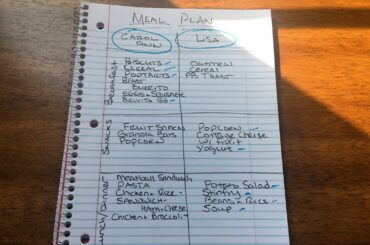 MEAL PLAN
CAROL ANN
LISA
Breakfast
BISCUITS
CEREAL
POPTARTS
BURRITO
EGGS + SAUSAGE
BELVITA BB
OATMEAL
CEREAL
PB TOAST
SNACKS
FRUIT SNACK
GRANOLA BARS
POPCORN
POPCORN
COTTAGE CHEESE
W/ FRUIT
YOGURT
Lunch/Dinner
MEATBALL SANDWICH
PASTA
CHICKEN + RICE
SANDWICH
HAM + CHEESE
CHICKEN + BROCCOLI
POTATO SALAD
STIRFRY
BEANS + RICE
SOUP